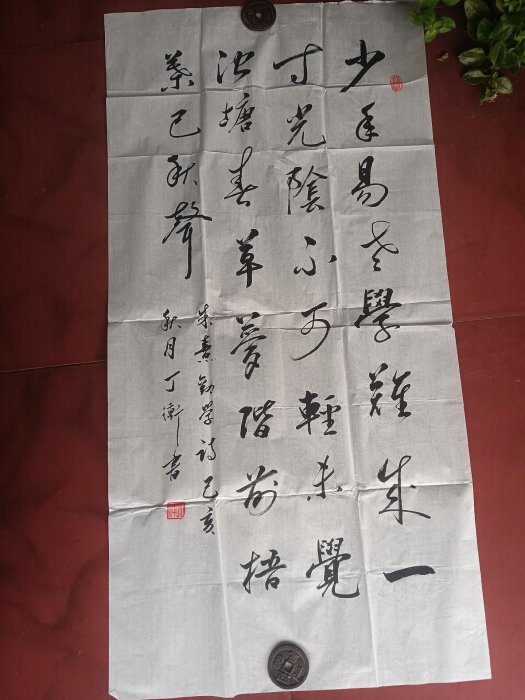 少年易老學難成一
寸光陰不可輕未覺
池塘春草夢階前梧
葉已秋聲
朱熹勸學詩己亥
秋月丁衛書